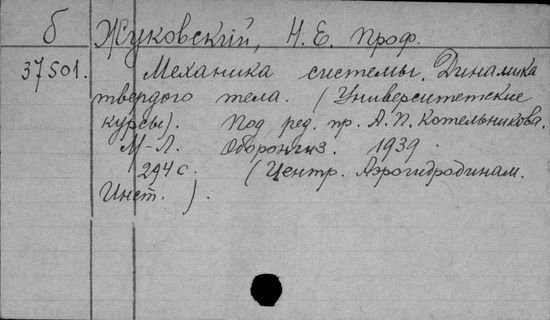 б Жуковский, Н. Е. Проф.
37501. Механика системы. Динамика
твердого тела. (Университетские
курсы). Под ред. пр. А. П. Котельникова.
М-Л. Оборонгиз. 1939.
294 с. (Центр. Аэрогидродинам.
Инст.).